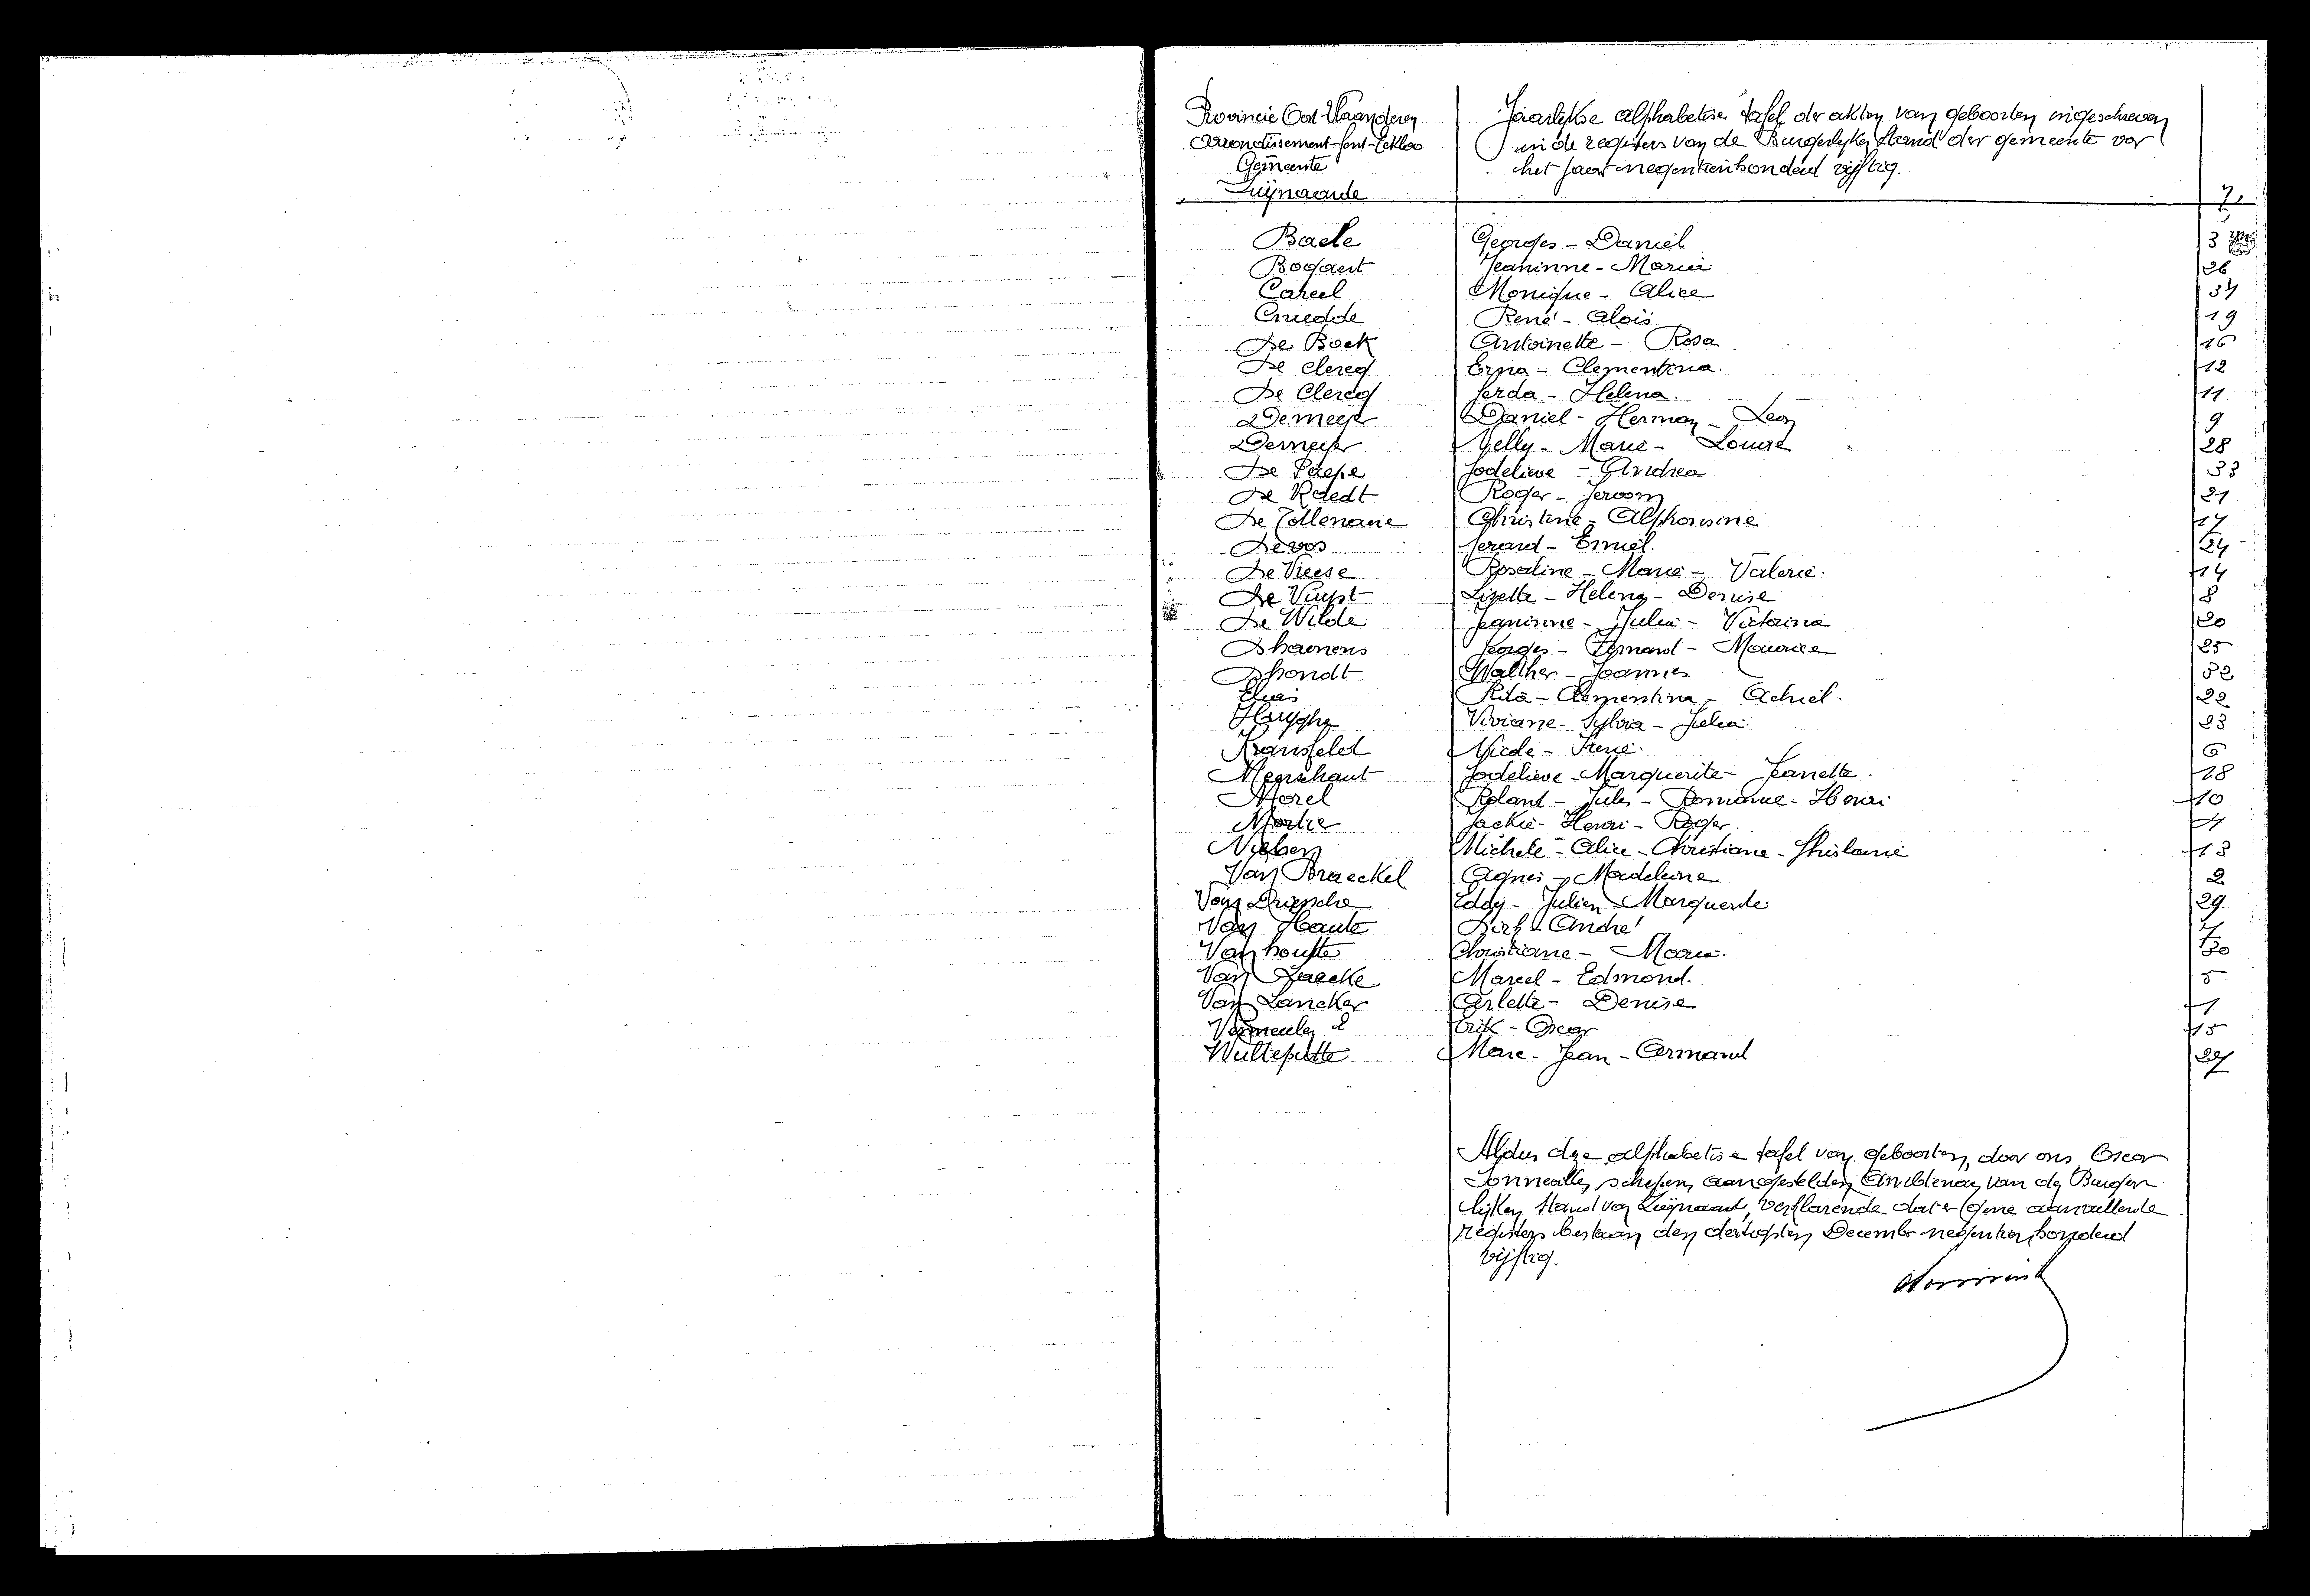 Provincie Oost-Vlaanderen
Arrondissement-Gent-Eekloo
Gemeente
Zwijnaarde
Jaarlijkse alphabetise tafel der akten van geboorten ingeschreven
in de registers van de Burgerlijken Stand der gemeente voor
het jaar negentienhonderd vijftig.
Baele Georges - Daniël 3
Bogaert Jeaninne - Maria 26
Careel Monique - Alice 31
Cnudde René - Aloïs 19
De Bock Antoinette - Rosa 16
De clercq Erna - Clementina. 12
De Clercq Gerda - Helena. 11
Demeyer Daniel - Herman - Leon 9
Demeyer Nelly - Marie - Louise 28
De Paepe Godelieve - Andrea 33
De Raedt Roger - Jeroom 21
De Tollenaere Christine - Alphonsine 17
Devos Gerard - Emiel. 24
De Vreese Rosaline - Marie - Valerie. 14
De Vuyst Lizette - Helena - Denise 8
De Wilde Jeaninne - Julia - Victorina 20
Dhaenens Georges - Fernand - Maurice 25
Dhondt Walther - Joannes 32
Elias Rita - Clementina - Achiel. 22
Huyghe Viviane - Sylvia - Julia. 23
Kransfeld Nicole - Irene. 6
Meerschaut Godelieve - Marguerite - Jeanette. 18
Morel Roland - Jules - Romanie - Henri 10
Mortier Jackie - Henri - Roger. 4
Michele - Alice - Christiane - Ghislaine 13
Van Braeckel Agnes - Madeleine 2
Van Driessche Eddy - Julien - Marguerite 29
Van Haute Dirk - André 7
Vanhoutte Christiane - Maria. 30
Van Laecke Marcel - Edmond. 5
Van Lancker Arlette - Denise 1
Vermeulen Erik - Oscar 15
Wulteputte Marc - Jean - Armand 27
Aldus deze alphabetise tafel van geboorten, door ons Oscar
schepen, aangestelden Ambtenaar van den Burger
lijken Stand van Zwijnaarde, verklarende dat er gene aanvullende
registers bestaan den dertigsten December negentienhonderd
vijftig.